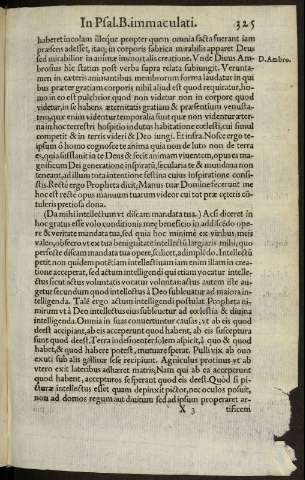 In Psal. B. immaculati. 325
haberet incolam illeque propter quem omnia facta fuerant iam
præsens adesset, itaq; in corporis fabrica mirabilis apparet Deus
sed mirabilior in animæ immortalis creatione. Vnde Diuus Am- D. Ambro.
brosius hic statim post verba supra relata subiungit. Verunta-
men in cæteris animantibus membrorum forma laudatur in qui
bus præter gratiam corporis nihil aliud est quod requiratur, ho-
mo in eo est pulchrior quod non videtur non in corpore quod
videtur, in se habens æternitatis gratiam & præsentium venusta-
tem, quæ enim videntur temporalia sunt quæ non videntur æter-
na in hoc terrestri hospitio indutus habitatione cœlesti, cui simul
competit & in terris videri & Deo iungi. Et infra Nosce ergo te-
ipsum ô homo cognosce te anima quia non de luto non de terra
es, quia sufflauit in te Deus & fecit animam viuentem, opus es ma-
gnificum Dei generatione inspiratū, secularia te & mundana non
teneant, ad illum tota intentione festina cuius inspiratione consi-
stis. Recte ergo Propheta dicit, Manus tuæ Domine fecerunt me
hoc est recte opus manuum tuarum videor cui tot præ cæteris cō-
tuleris pretiosa dona.
(Da mihi intellectum vt discam mandata tua.) Ac si diceret in
hoc gratus esse volo conditionis meæ beneficio in addiscēdo ope-
re & veritate mandata tua, sed quia hoc minimè ex viribus meis
valeo, obsecro vt ex tua benignitate intellectū largiaris mihi, quo
perfecte discam mandata tua opere, scilicet, adimplēdo. Intellectū
petit non quidem potētiam intellectiuam iam enim illam in crea-
tione acceperat, sed actum intelligendi qui etiam vocatur intelle-
ctus sicut actus voluntatis vocatur voluntas actus autem ille au-
getur secundum quod intellectus à Deo subleuatur ad maiora in-
telligenda. Talē ergo actum intelligendi postulat Propheta ni-
mirum vt à Deo intellectus eius subleuetur ad cœlestia & diuina
intelligenda. Omnia in suas conuertuntur causas, vt ab eis quod
deest accipiant, ab eis acceperunt quod habent, ab eis susceptura
sunt quod deest. Terra indesinenter solem aspicit, à quo & quod
habet, & quod habere potest, mutuare sperat. Pullus vix ab ouo
exuti sub alis gallinæ sese recipiunt. Agniculus protinus vt ab
vtero exit lateribus adhæret matris, Nam qui ab ea acceperunt
quod habent, accepturos se sperant quod eis deest. Quod si pi-
cturæ intellectus esset quam depinxit pictor, nec oculos posuit,
non ad domos regum aut diuitum sed ad ipsum properaret ar-
X 3 tificem